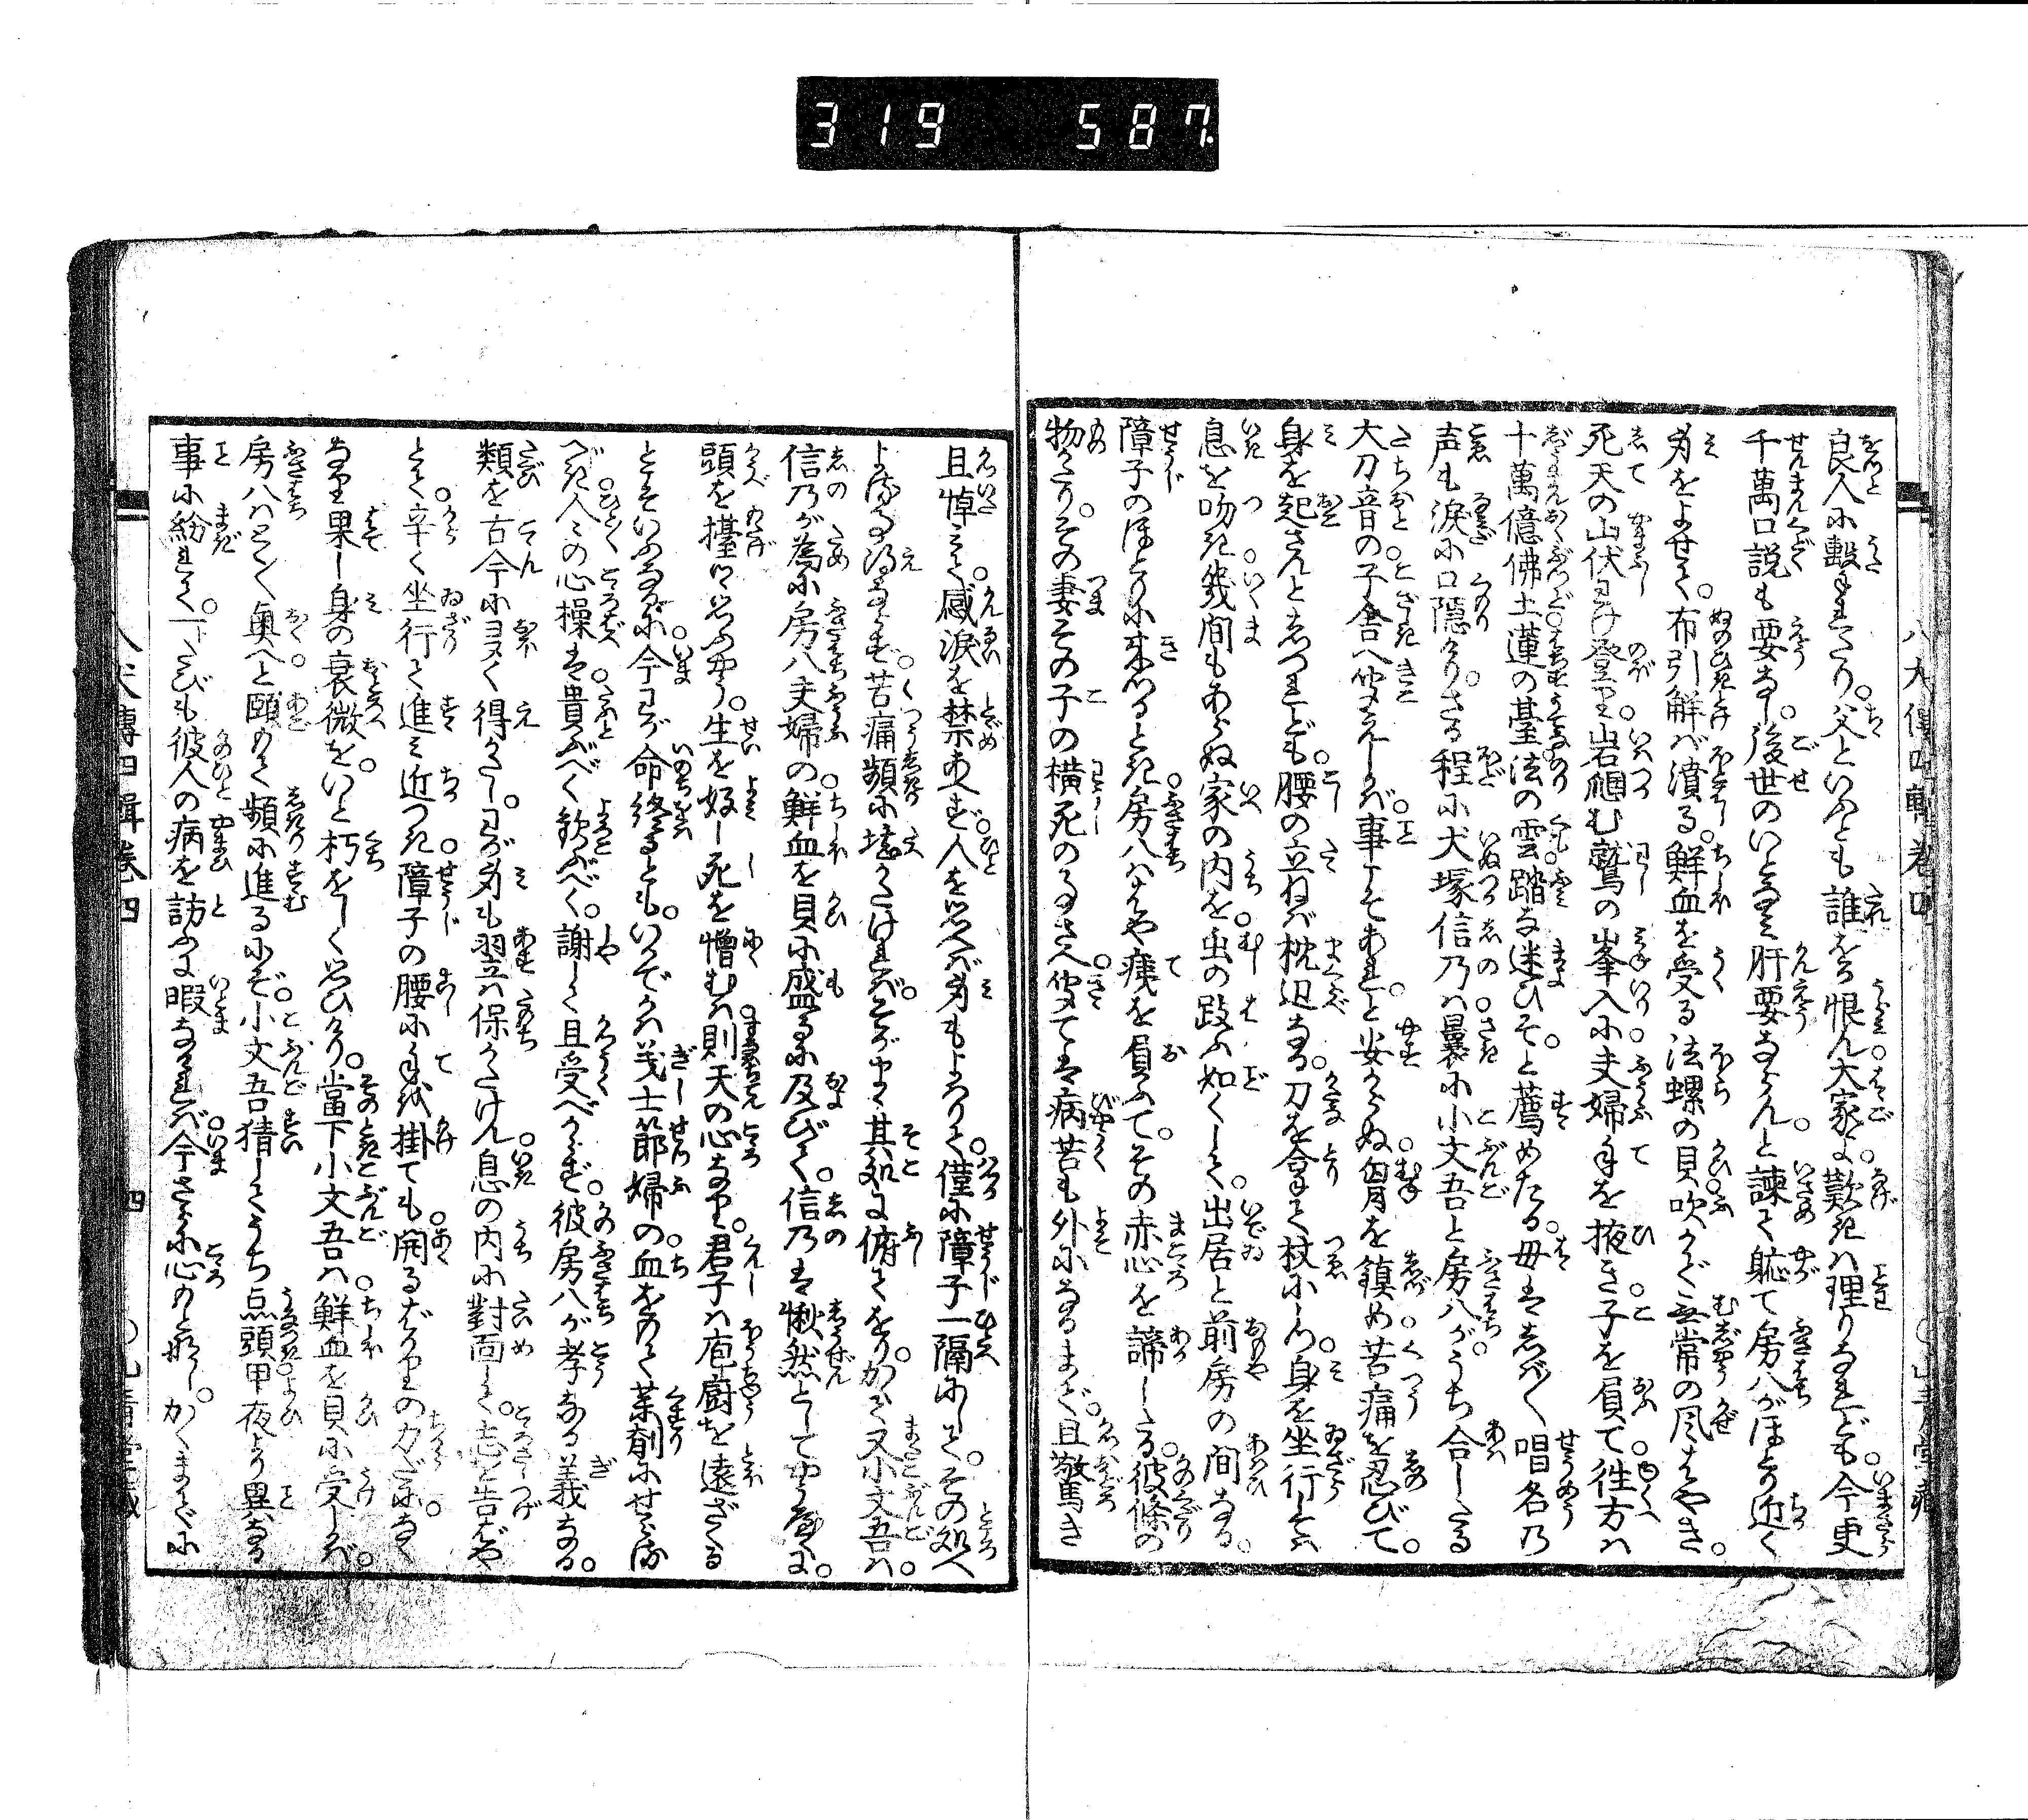 319 587
八犬傳四輯巻四
良人に撃れたり。父といふとも誰をか恨ん大家よ。歎きは理りなれども今更
千萬口説も要なし。後世のいとなみ肝要ならんと。諫て躮て房八がほとり近く
身をよせて。布引解ば潰る鮮血を受る法螺の貝吹かで無常の風はやき。
死天の山伏わけ登る。岩綑む鷲の峯入に。夫婦手を掖き子を負て。往方は
十萬億佛土蓮の臺法の雲踏な迷ひそ。と薦めたる。母はしば〱唱名の
声も涙に口隠りけり。さる程に犬塚信乃は曩に小文吾と房八が。うち合したる
大刀音の子舎へ聞えしかば。事こそあれ。と安からぬ。胸を鎮め苦痛を忍びて。
身を起さんとしつれども。腰の立ねば枕辺なる。刀を合手て杖にしつ。身を坐行しては
息を吻き。幾間もあらぬ家の内を。虫の跂ふ如くして。出居と前房の間なる。
障子のほとりに来つるとき。房八ははや痍を負ふて。その赤心を諦したる。彼條の
物かたり。その妻その子の横死の事さへ。聞ては病苦も外になるまで。且驚き
且悼みて。感涙を禁あへず。人を思へば身もよわりて。僅に障子一隔にして。その処へ
よる事得ならず。苦痛頻に堪かたければ。そがまゝ其処に俯してをり。かくて又小文吾は。
信乃が為に房八夫婦の。鮮血を貝に盛るに及びて。信乃は愀然として
頭を擡つゝ思ふやう。生を好し死を憎むは。則天の心なり。君子は庖厨を遠ざくる
とこそいふなるに。今わが命終るとも。いかでかは義士節婦の。血をもて薬剤にせらるべき
人々の心操は。貴ぶべく歓ぶべく。謝しく且受べからず。彼房八が孝なる義なる。
類を古今にヨヌく得がたし。わが身も翌は保ちがたけん。息の内に對面して。志を告ばや
とて。辛く坐行て進み近つき。障子の腰に手は掛ても。開るばかりの力だになく
なり果し身の衰微を。いと朽をしく思ひけり。當下小文吾は。鮮血を貝に受しかば。
房八はとく〱奥へと。頤もて頻に進るにぞ。小文吾猜してうち点頭。甲夜より異なる
事に紛れて。一トたびも彼人の病を訪ふに暇なければ。今さらに心もとなし。かくまでに
八犬傳四輯巻四
四